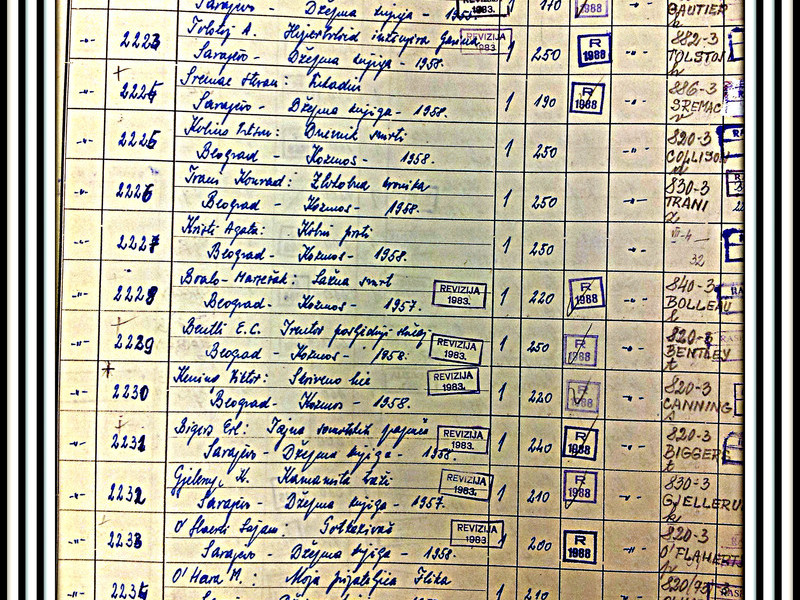 Sarajevo - Džepna knjiga - 1957. REVIZIJA 1 170 1988 GAUTIER
-"- 2223 Tolstoj A. Hiperboloid inženjera Garina REVIZIJA 1983. 882-3
Sarajevo - Džepna knjiga - 1958. 1 250 R 1988 -"- TOLSTOJ
2224 Sremac Stevan: 886-3
Sarajevo - Džepna knjiga - 1958. 1 190 R 1988 -"- SREMAC
-"- 2225 Dnevnik smrti 820-3
Beograd - Kozmos - 1958. 1 250 -"- COLLISON
-"- 2226 Trani Konrad: Zlokobna kronika 830-3
Beograd - Kozmos - 1958. 1 250 -"- TRANI
-"- 2227 Kristi Agata: Kobni prsti VII-4
Beograd - Kozmos - 1958. 1 250 -"- 32
-"- 2228 Boalo-Narsežak: Lažna smrt 840-3
Beograd - Kozmos - 1957. REVIZIJA 1983. 1 220 R 1988 -"- BOLLEAU
-"- 2229 Bentli E.C. Trentov posljednji slučaj 820-3
Beograd - Kozmos - 1958. REVIZIJA 1983. 1 250 R 1988 -"- BENTLEY
-"- 2230 Kening Viktor: Skriveno lice REVIZIJA 1983. 820-3
Beograd - Kozmos - 1958. 1 220 R 1988 -"- CANNING
-"- 2231 Bigers Erl: Tajna 820-3
Sarajevo - Džepna knjiga - 1958. REVIZIJA 1983. 1 240 R 1988 -"- BIGGERS
-"- 2232 Gjelerup K. Kamanita traži REVIZIJA 1983. 830-3
Sarajevo - Džepna knjiga - 1957. 1 210 R 1988 -"- GJELLERU
-"- 2233 O'Flaerti Lajam: Potkazivač REVIZIJA 1983. 820-3
Sarajevo - Džepna knjiga - 1958. 1 200 R 1988 -"- O'FLAHERT
-"- 2234 O'Hara M.: Moja prijateljica Flika 1 210 820(73)